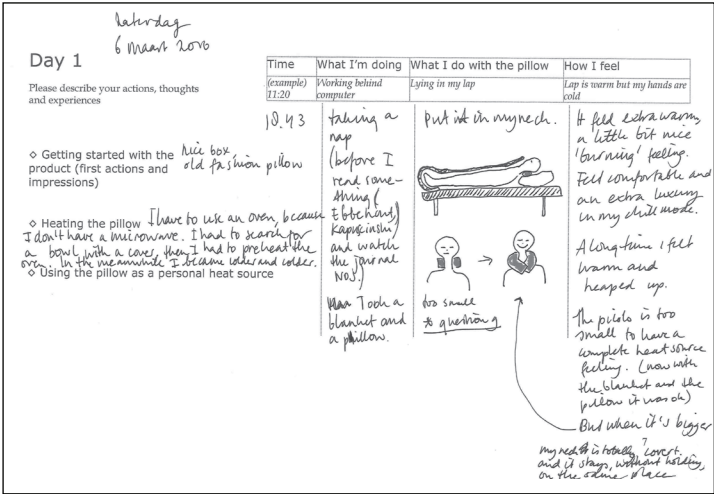 Zaterdag
6 maart 2010
Day 1
Please describe your actions, thoughts
and experiences
◇ Getting started with the
product (first actions and
impressions)
nice box
old fashion pillow
◇ Heating the pillow I have to use an oven, because
I don't have a microwave. I had to search for
a bowl with a cover, then I had to preheat the
oven. In the meanwhile I became colder and colder.
◇ Using the pillow as a personal heat source
Time
(example)
11:20
18.43
What I'm doing
Working behind
computer
taking a
nap
(before I
read some-
thing (
Kapuscinski)
and watch
the journal
NOS.)
Took a
blanket and
a pillow.
What I do with the pillow
Lying in my lap
Put it in my neck.
too small
How I feel
Lap is warm but my hands are
cold
It feld extra warm,
a little bit nice
'burning' feeling.
Felt comfortable and
an extra luxury
in my chill mode.
A long time I felt
warm and
heaped up.
The pilolo is too
small to have a
complete heat source
feeling. (now with
the blanket and the
pillow it was ok)
But when it's bigger
my neck is totally covert.
and it stays, without holding,
on the same place